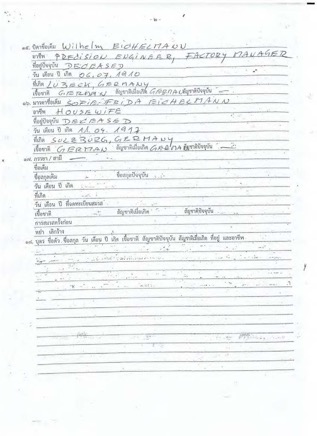 ๑๕. บิดาชื่อเดิม Wilhelm EICHELMANN
อาชีพ PRECISION ENGINEER, FACTORY MANAGER
ที่อยู่ปัจจุบัน DECEASED
วัน เดือน ปี เกิด 06.07.1910
ที่เกิด LUBECK, GERMANY
เชื้อชาติ GERMAN สัญชาติเมื่อเกิด GERMAN สัญชาติปัจจุบัน —
๑๖. มารดาชื่อเดิม SOFIE FRIDA EICHELMANN
อาชีพ HOUSEWIFE
ที่อยู่ปัจจุบัน DECEASED
วัน เดือน ปี เกิด 11.04.1917
ที่เกิด SULZBURG, GERMANY
เชื้อชาติ GERMAN สัญชาติเมื่อเกิด GERMAN สัญชาติปัจจุบัน —
๑๗. ภรรยา / สามี
ชื่อเดิม
ชื่อสกุลเดิม ชื่อสกุลปัจจุบัน
วัน เดือน ปี เกิด
ที่เกิด
วัน เดือน ปี ที่จดทะเบียนสมรส
เชื้อชาติ สัญชาติเมื่อเกิด สัญชาติปัจจุบัน
การสมรสครั้งก่อน
หย่า เลิกร้าง
๑๘. บุตร ชื่อตัว ชื่อสกุล วัน เดือน ปี เกิด เชื้อชาติ สัญชาติปัจจุบัน สัญชาติเมื่อเกิด ที่อยู่ และอาชีพ